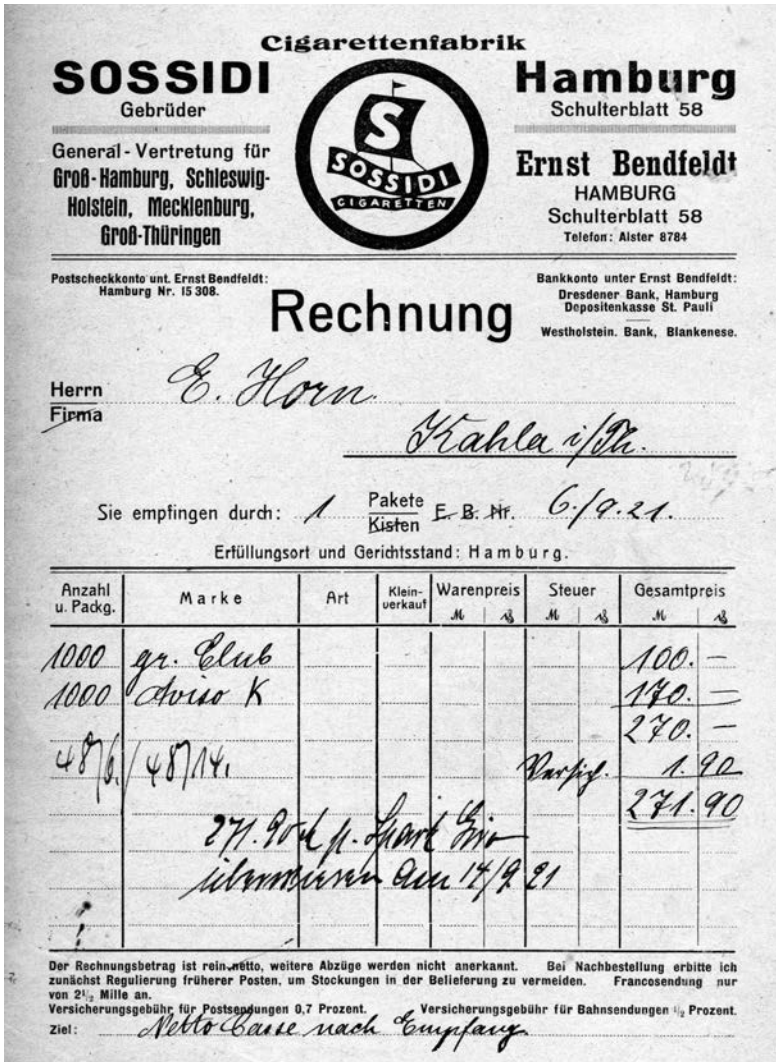 Cigarettenfabrik
SOSSIDI
Gebrüder
General-Vertretung für
Groß-Hamburg, Schleswig-
Holstein, Mecklenburg,
Groß-Thüringen
S
SOSSIDI
CIGARETTEN
Hamburg
Schulterblatt 58
Ernst Bendfeldt
HAMBURG
Schulterblatt 58
Telefon: Alster 8784
Postscheckkonto unt. Ernst Bendfeldt:
Hamburg Nr. 15 308.
Rechnung
Bankkonto unter Ernst Bendfeldt:
Dresdener Bank, Hamburg
Depositenkasse St. Pauli
Westholstein. Bank, Blankenese.
Herrn E. Horn.
Firma
Kahla i/Th.
Sie empfingen durch: 1 Pakete
Kisten E. B. Nr. 6./9.21.
Erfüllungsort und Gerichtsstand: Hamburg.
Anzahl u. Packg. Marke Art Klein-verkauf Warenpreis Steuer Gesamtpreis
M ₰ M ₰ M ₰
1000 gr. Club 100. —
1000 Aviso K 170. —
270. —
48/6. / 48/14. Versich. 1.90
271.90
271.90 p. Giro
überwiesen am 14/9 21
Der Rechnungsbetrag ist rein netto, weitere Abzüge werden nicht anerkannt. Bei Nachbestellung erbitte ich
zunächst Regulierung früherer Posten, um Stockungen in der Belieferung zu vermeiden. Francosendung nur
von 2½ Mille an.
Versicherungsgebühr für Postsendungen 0,7 Prozent. Versicherungsgebühr für Bahnsendungen ½ Prozent.
Ziel: Netto Casse nach Empfang.